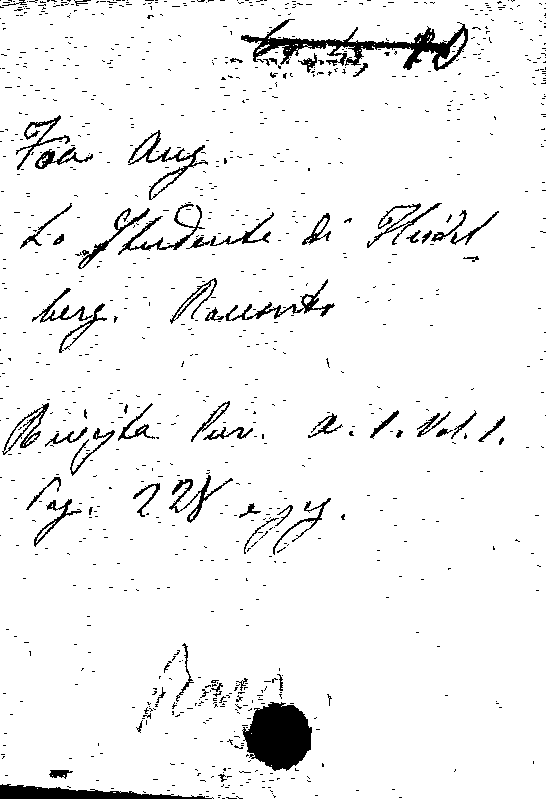 Foa Aug.
Lo Studente di Heidel
berg. Racconto
Rivista Eur. a. 1. Vol. 1.
Pag. 228 e sgg.